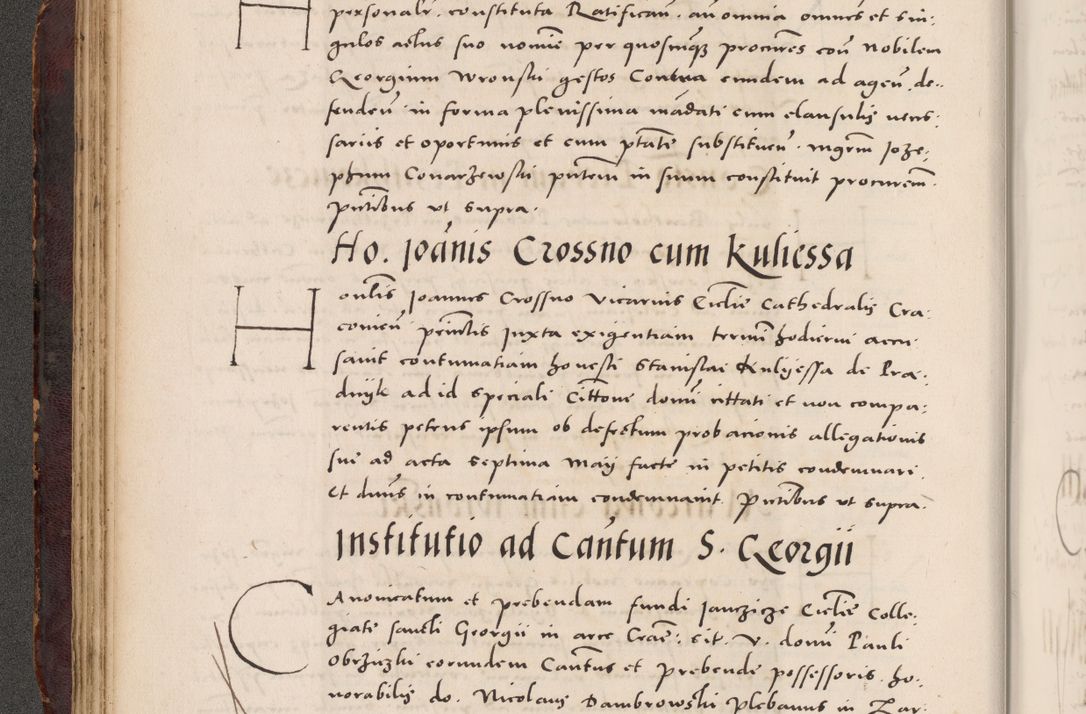 personalr. constituta Ratifican. an omnia omnes et sin:
gulos actus suo nomie per quosmqz procures con Nobilem
Georgium Wronski gestos Contra eundem ad agen. de..
fenden in forma plenissima madati cum clausulis neces:
sariis et oportunis et cum ptate substituen. mgrm Joze:
phum Conarzewski pntem in suum constituit procurem.
pntibus ut supra.
Ho. Joanis Crossno cum Kuliessa
Honlis Joannes Crossno Vicarius Ecclie Cathedralis Cra:
covien principalis Juxta exigentiam termini hodierni accu
savit contumatiam honesti Stanislai Kulyessa de Pra:
dnyk ad id speciali Cittone domi cittati et non compa:
rentis petens ipsum ob defectum probacionis allegationis
sue ad acta septima Maij facte in petitis condemnari.
Et dnus in contumatiam condemnavit. Pntibus ut supra.
Institutio ad Cantum S. Georgii
Canonicatum et prebendam fundi Janczicze Ecclie Colle:
giate sancti Georgii in arce Crac: cit. V. domi Pauli
Obrzuzki eorundem Cantus et Prebende possessoris. ho:
norabilis do. Nicolaus Dambrowski Plebanus in Zar: